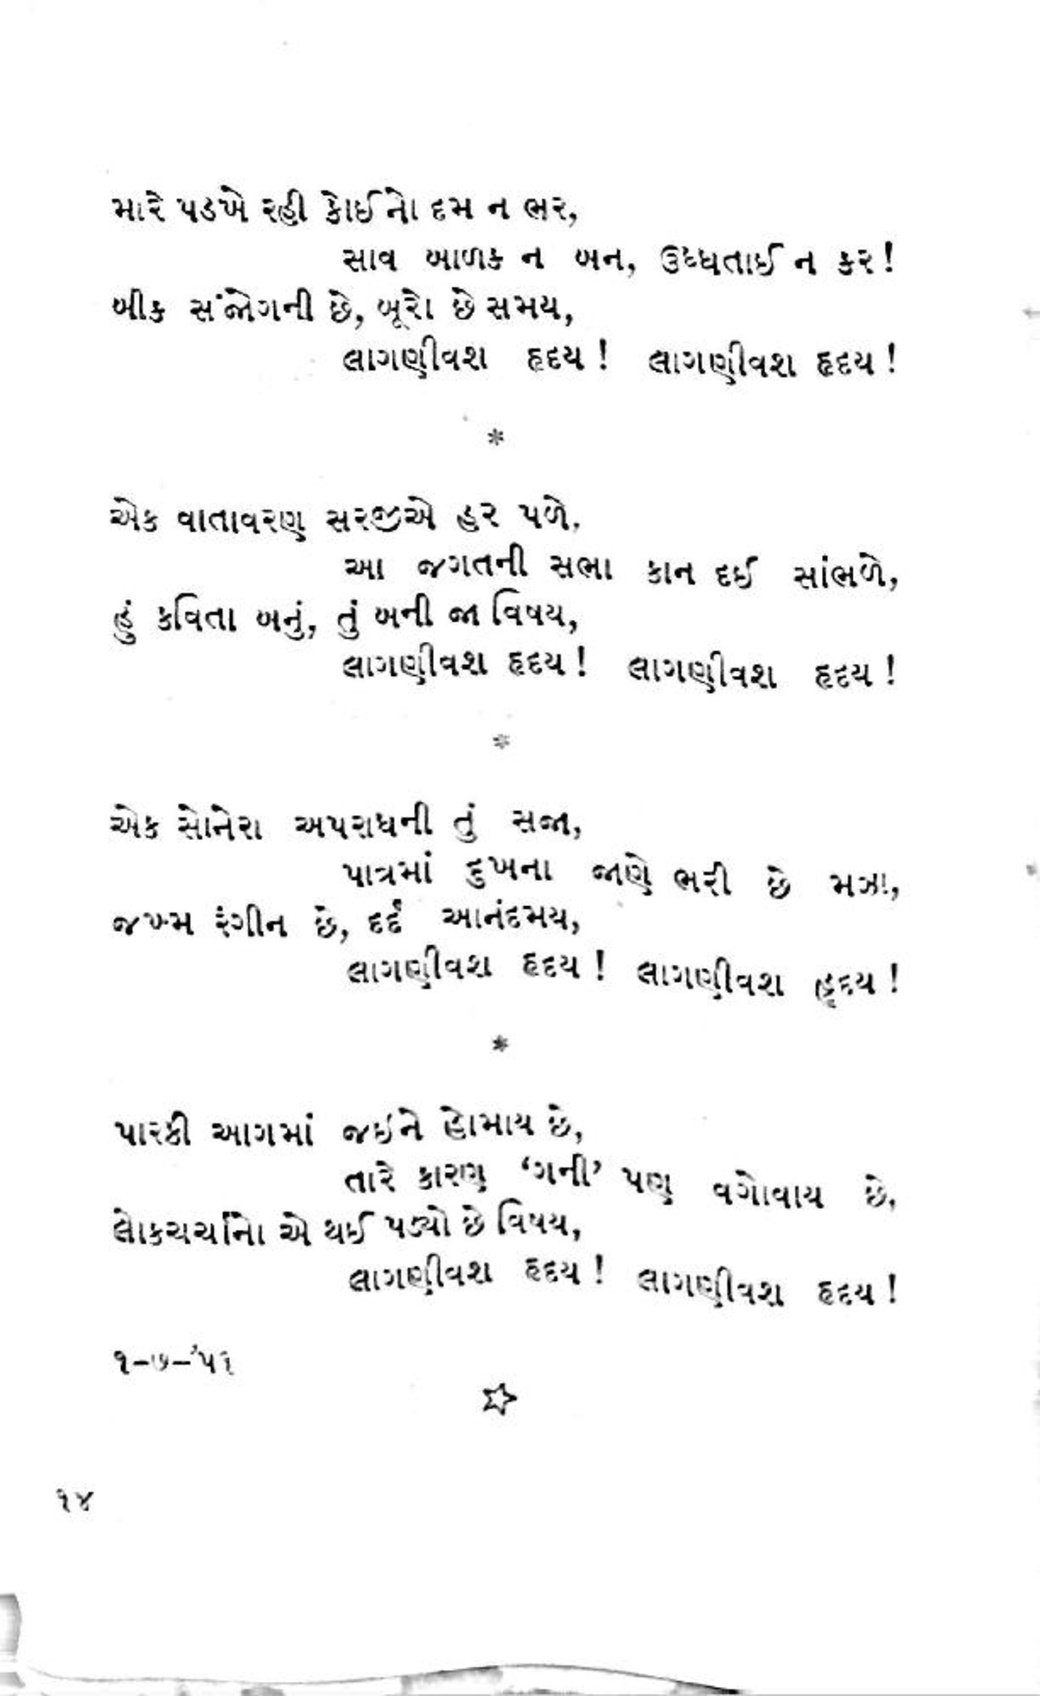 મારે પડખે રહી કોઈનો દમ ન ભર,
સાવ બાળક ન બન, ઉધ્ધતાઈ ન કર!
બીક સંજોગની છે, બૂરો છે સમય,
લાગણીવશ હૃદય! લાગણીવશ હૃદય!
*
એક વાતાવરણ સરજીએ હર પળે,
આ જગતની સભા કાન દઈ સાંભળે,
હું કવિતા બનું, તું બની જા વિષય,
લાગણીવશ હૃદય! લાગણીવશ હૃદય!
*
એક સોનેરા અપરાધની તું સજા,
પાત્રમાં દુખના જાણે ભરી છે મઝા,
જખ્મ રંગીન છે, દર્દ આનંદમય,
લાગણીવશ હૃદય! લાગણીવશ હૃદય!
*
પારકી આગમાં જઇને હોમાય છે,
તારે કારણ ‘ગની’ પણ વગોવાય છે,
લોકચર્ચાનો એ થઈ પડ્યો છે વિષય,
લાગણીવશ હૃદય! લાગણીવશ હૃદય!
૧-૭-’૫૬
૧૪